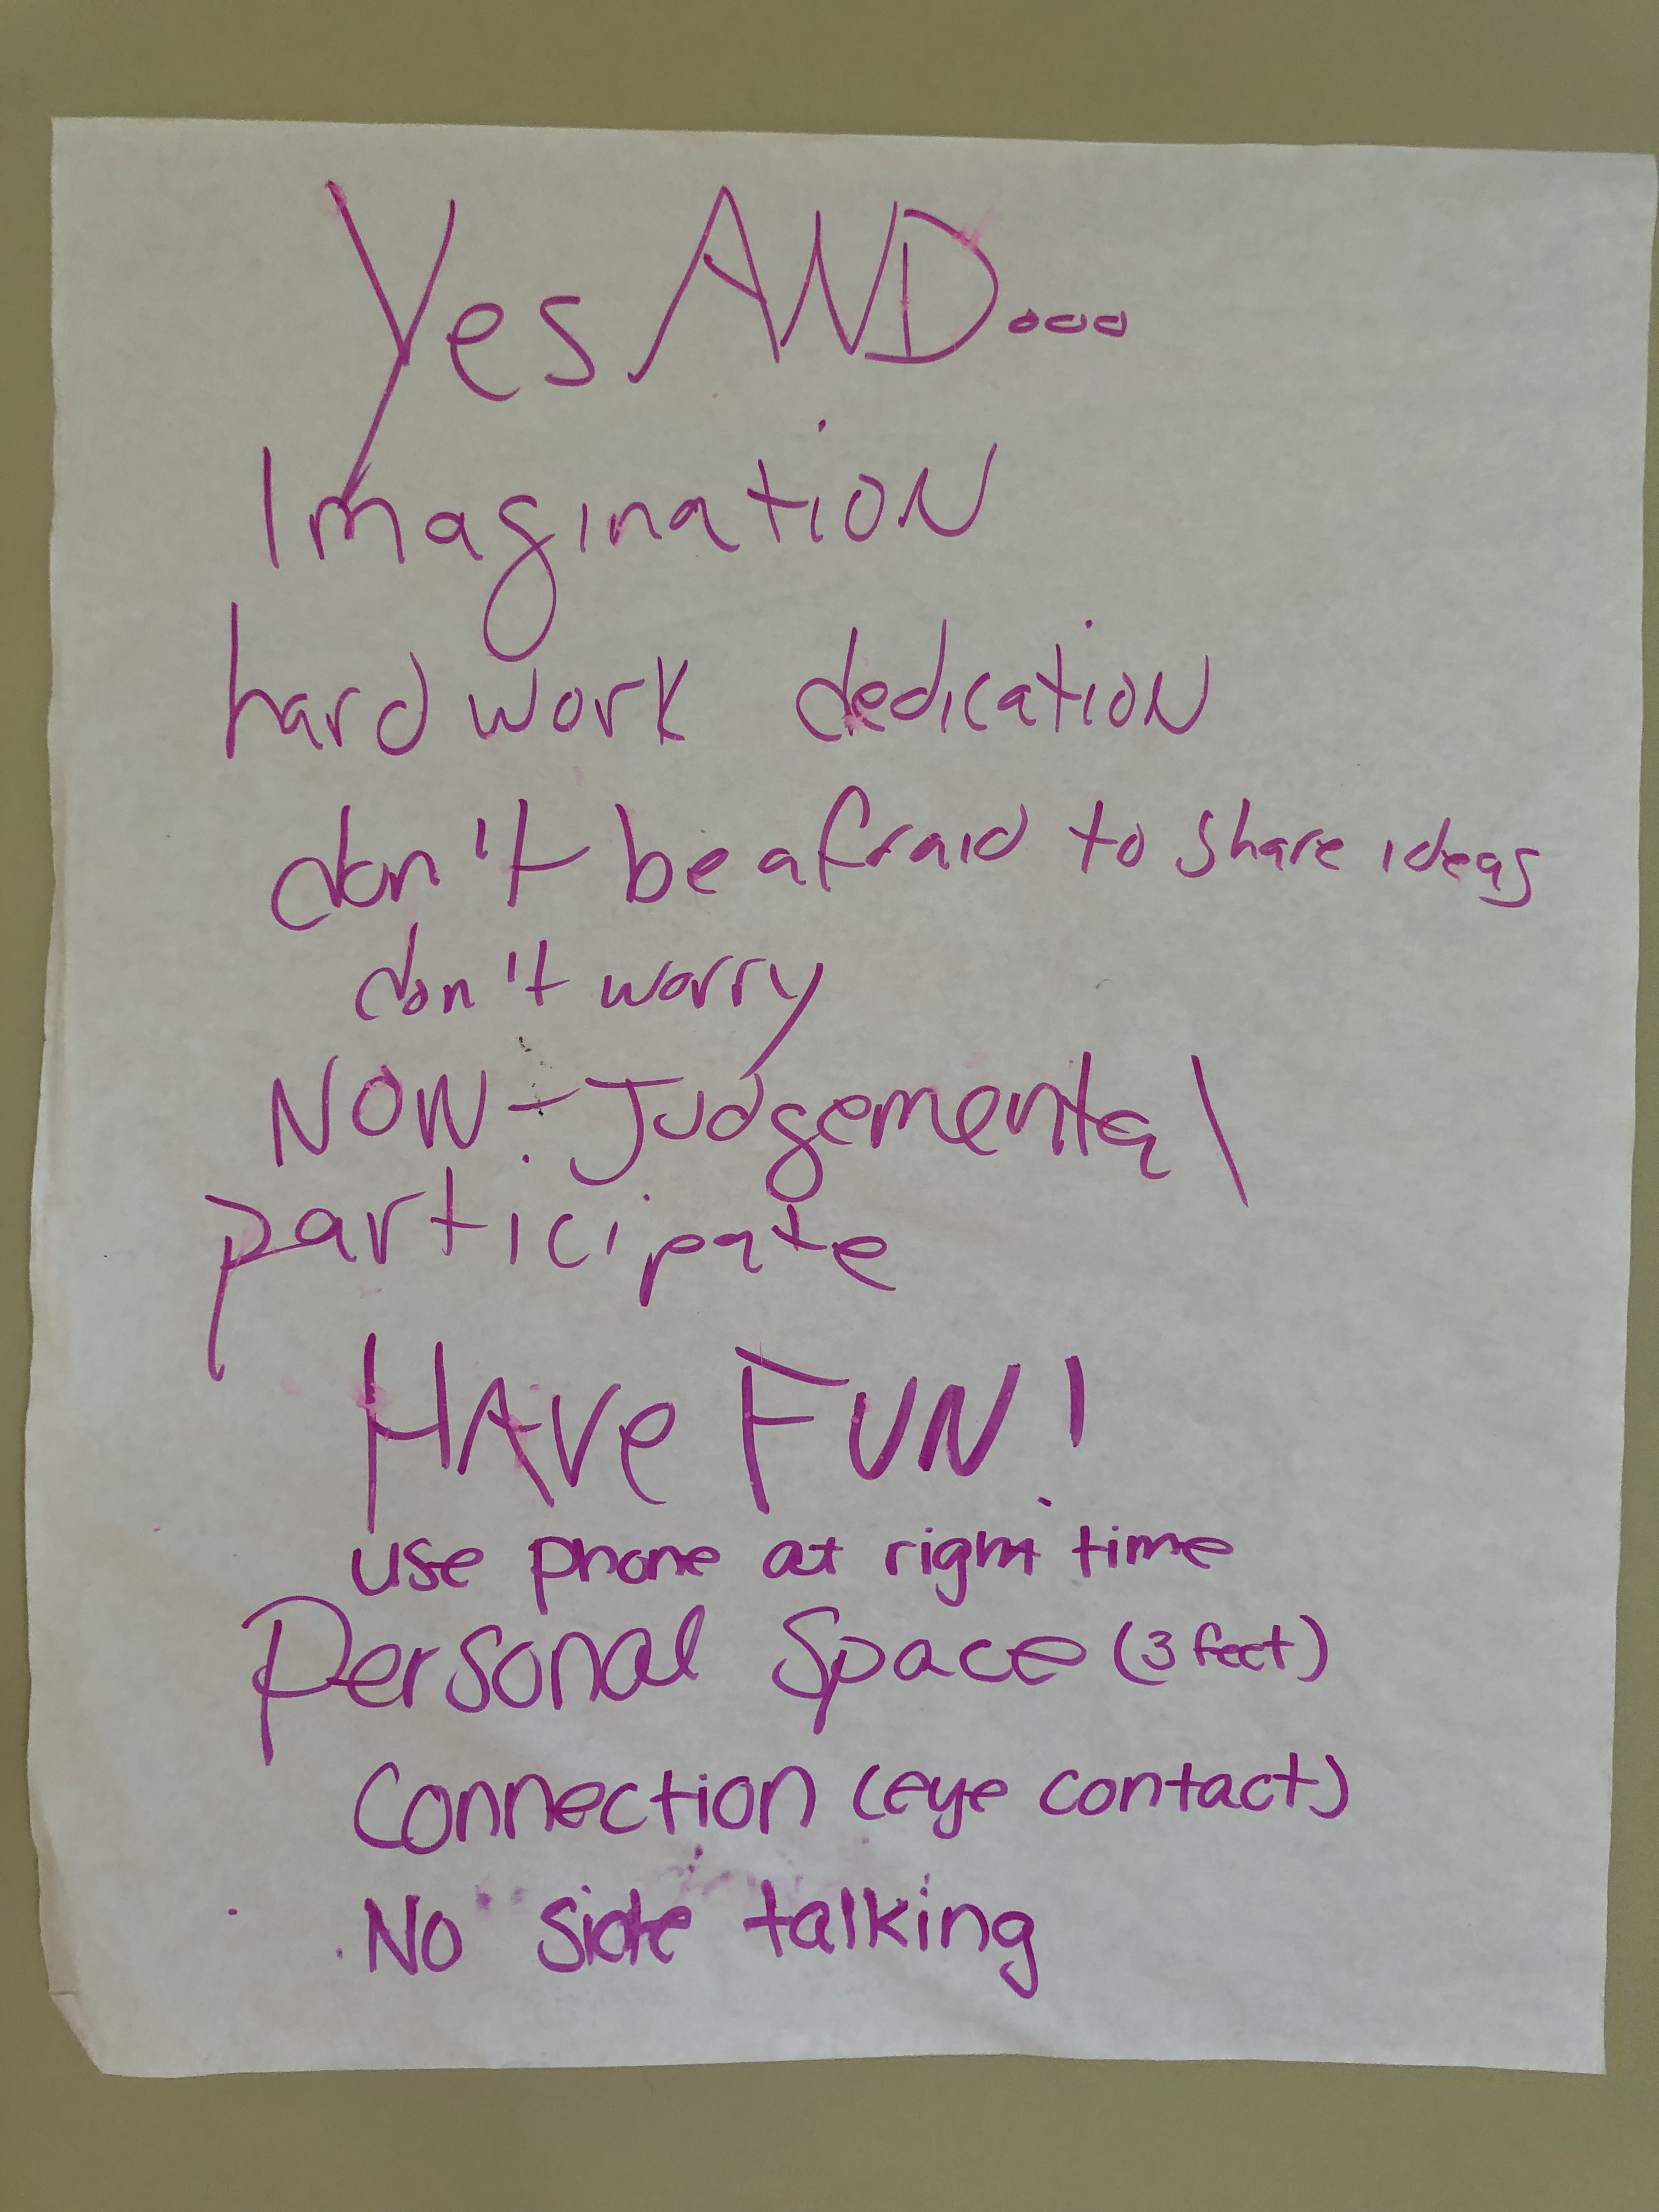 Yes AND...
Imagination
hard work dedication
don't be afraid to share ideas
don't worry
NON-Judgemental
participate
HAVe FUN!
use phone at right time
Personal Space (3 feet)
Connection (eye contact)
No side talking